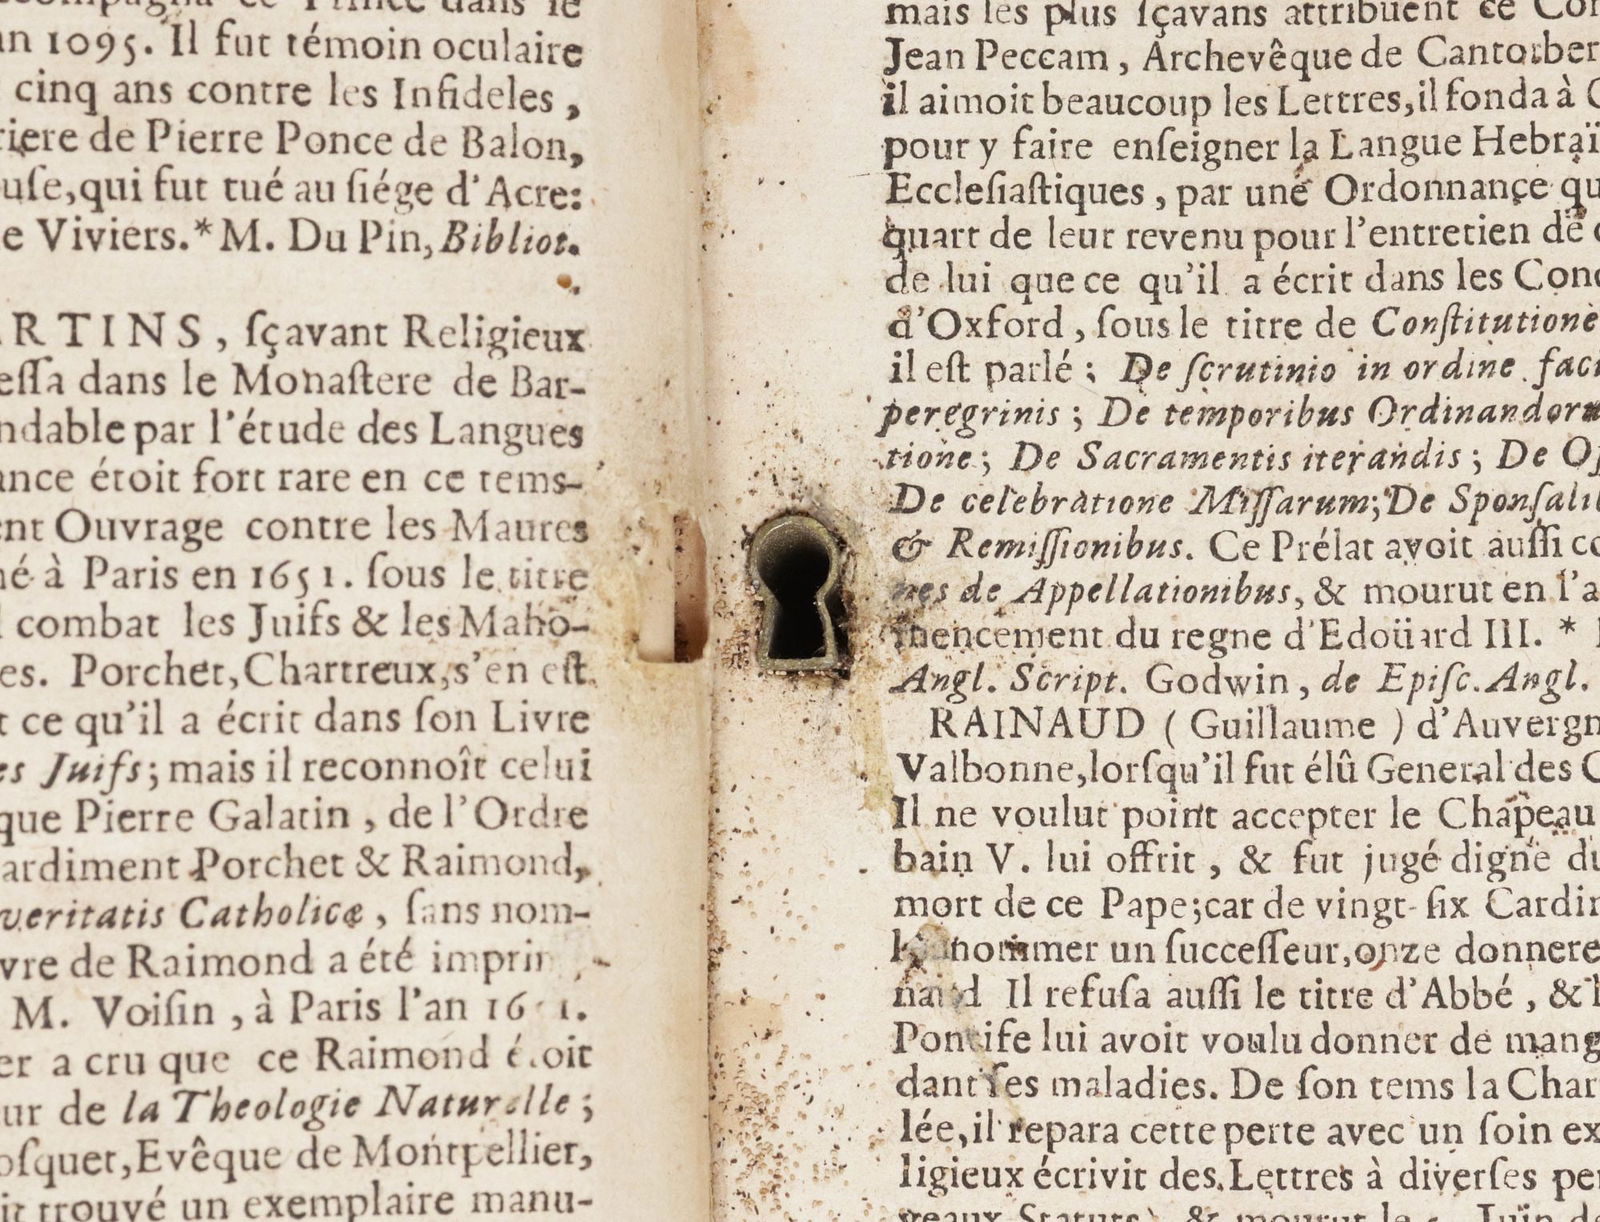 an 1095. Il fut témoin oculaire
cinq ans contre les Infideles,
riere de Pierre Ponce de Balon,
uſe, qui fut tué au ſiége d'Acre:
e Viviers. * M. Du Pin, Bibliot.
RTINS, ſçavant Religieux
eſſa dans le Monaſtere de Bar-
ndable par l'étude des Langues
ance étoit fort rare en ce tems-
ent Ouvrage contre les Maures
né à Paris en 1651. ſous le titre
l combat les Juifs & les Maho-
es. Porchet, Chartreux, s'en eſt
t ce qu'il a écrit dans ſon Livre
es Juifs; mais il reconnoît celui
que Pierre Galatin, de l'Ordre
ardiment Porchet & Raimond,
veritatis Catholicæ, ſans nom-
vre de Raimond a été imprim
M. Voiſin, à Paris l'an
er a cru que ce Raimond étoit
ur de la Theologie Naturelle;
oſquet, Evêque de Montpellier,
it trouvé un exemplaire manu-
mais les plus ſçavans attribuent ce Com
Jean Peccam, Archevêque de Cantorber
il aimoit beaucoup les Lettres, il fonda à
pour y faire enſeigner la Langue Hebraï
Eccleſiaſtiques, par une Ordonnance qu
quart de leur revenu pour l'entretien de
de lui que ce qu'il a écrit dans les Conc
d'Oxford, ſous le titre de Conſtitutione
il eſt parlé; De ſcrutinio in ordine faci
peregrinis; De temporibus Ordinandoru
tione; De Sacramentis iterandis; De Of
De celebratione Miſſarum; De Sponſalib
& Remiſſionibus. Ce Prélat avoit auſſi co
nes de Appellationibus, & mourut en l'a
mencement du regne d'Edoüard III. *
Angl. Script. Godwin, de Epiſc. Angl.
RAINAUD (Guillaume) d'Auvergn
Valbonne, lorſqu'il fut élû General des C
Il ne voulut point accepter le Chapeau
bain V. lui offrit, & fut jugé digne du
mort de ce Pape; car de vingt-ſix Cardin
nommer un ſucceſſeur, onze donnere
naud Il refuſa auſſi le titre d'Abbé, &
Pontife lui avoit voulu donner de mang
dant ſes maladies. De ſon tems la Char
lée, il repara cette perte avec un ſoin ex
ligieux écrivit des Lettres à diverſes per
veaux Statuts, & mourut le Juin de